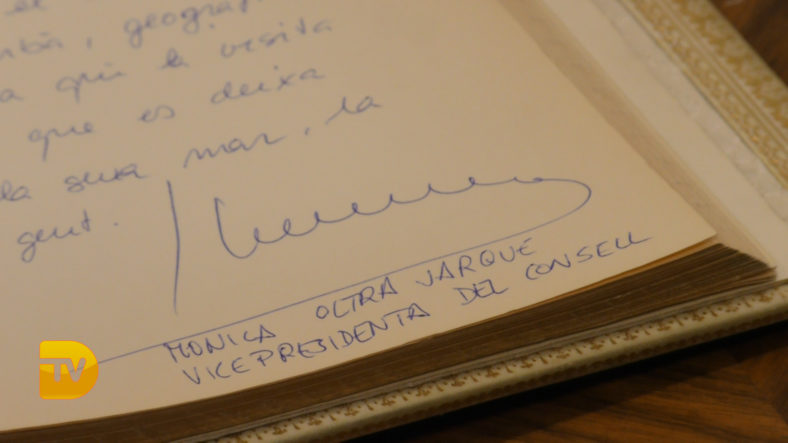 geogra
a qui la visita
que es deixa
la seua mar, la
gent.
MONICA OLTRA JARQUE
VICEPRESIDENTA DEL CONSELL
DTV